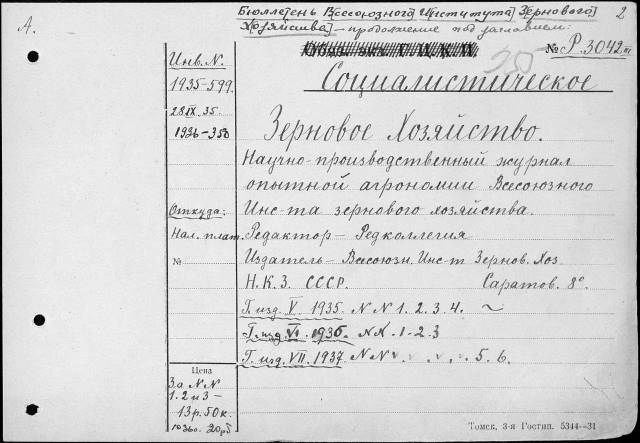 Бюллетень Всесоюзного Института Зернового 2
А. Хозяйства – продолжение под заглавием:
Инв. N. № Р. 3042 III
1935-599. Социалистическое
28 IX 35.
1936-350 Зерновое Хозяйство.
Научно-производственный журнал
опытной агрономии Всесоюзного
Откуда: Инс-та зернового хозяйства.
Нал. плат. Редактор – Редколлегия
№ Издатель – Всесоюзн. Инс-т Зернов. Хоз.
Н.К.З. СССР. Саратов. 8°.
Г. изд. V. 1935. N N 1. 2. 3. 4. ~
Г. изд. VI. 1936. N N. 1-2-3
Г. изд. VII. 1937. N N v. v. v. v. 5. 6.
Цена
За N N
1. 2 и 3 –
13 р. 50 к.
20 рб
Томск, 3-я Гостип. 5344—31